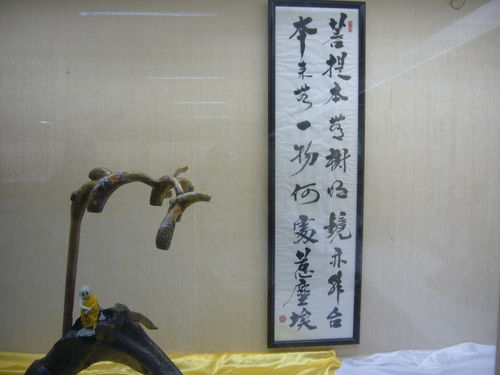 菩提本無樹明鏡亦非台
本来無一物何處惹塵埃